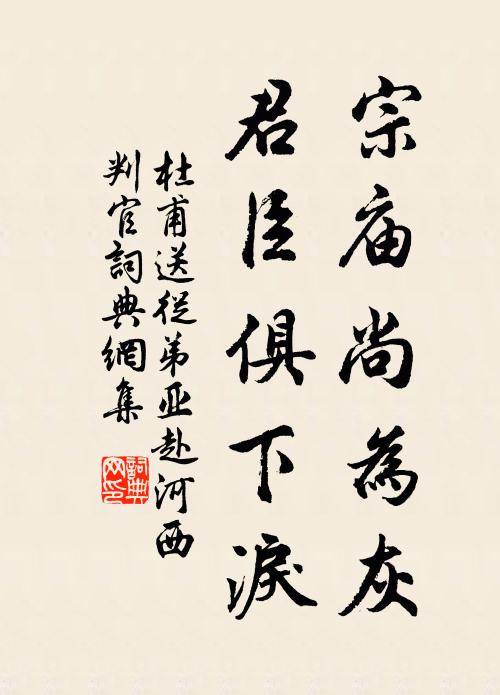 宗庙尚為灰
君臣俱下淚
杜甫送從弟亚赴河西
判官詞典網集
詞典
网印